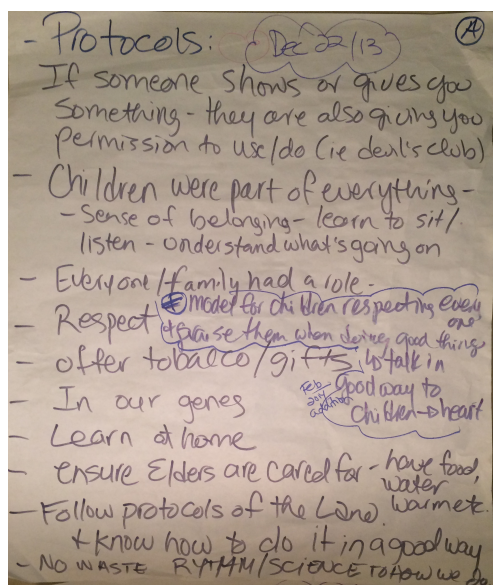 - Protocols: Dec 22/13 A
If someone shows or gives you
something - they are also giving you
permission to use/do (ie devil's club)
- Children were part of everything -
- Sense of belonging - learn to sit/
listen - understand what's going on
- Everyone/family had a role -
- Respect
* model for children respecting every one
+ praise them when doing good things
- offer tobacco/gifts
↳ talk in
good way to
children → heart
Feb
addition
- In our genes
- Learn at home
- ensure Elders are cared for - have food,
water
warm etc.
- Follow protocols of the Land
+ know how to do it in a good way
- NO WASTE RYTHM/SCIENCE TO HOW WE